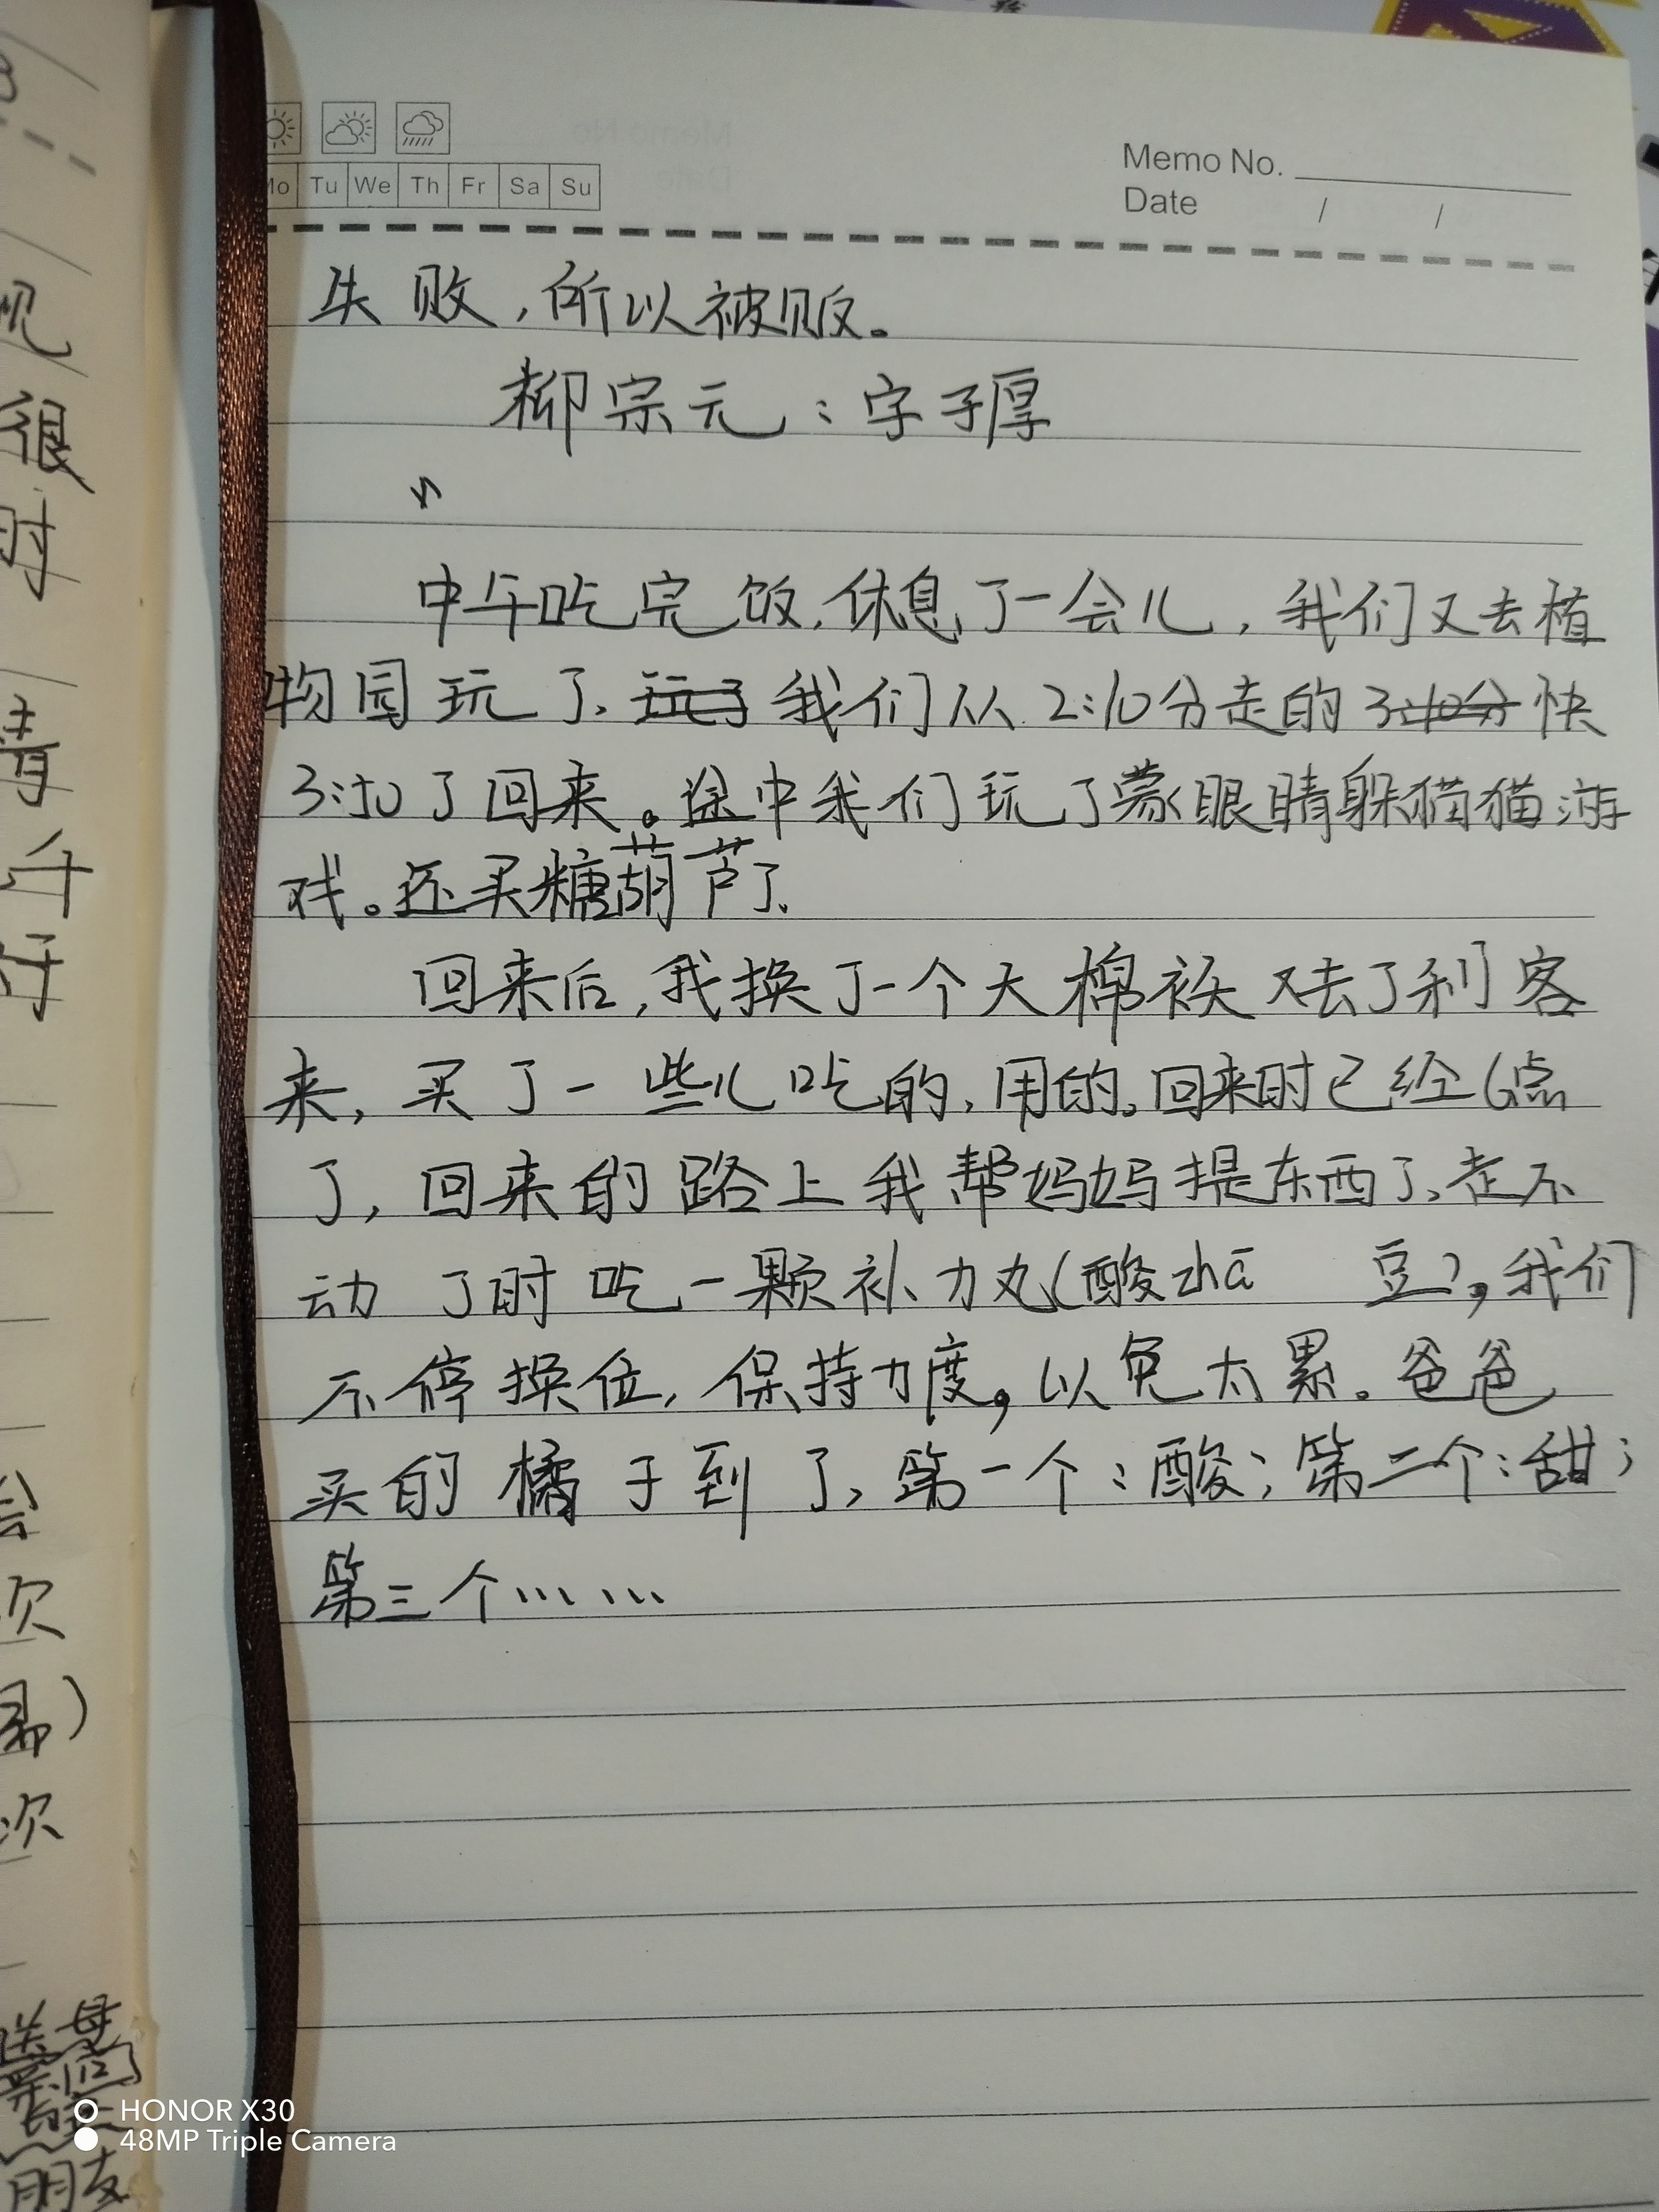 Mo Tu We Th Fr Sa Su
Memo No.
Date / /
失败,所以被贩。
柳宗元:字子厚
中午吃完饭,休息了一会儿,我们又去植
物园玩了、玩了我们从2:10分走的3:10分快
3:50了回来。途中我们玩了蒙眼睛躲猫猫游
戏。还买糖葫芦了、
回来后,我换了一个大棉袄又去了利客
来,买了一些儿吃的,用的。回来时已经6点
了,回来的路上我帮妈妈提东西了、走不
动了时吃一颗补力丸(酸zhā 豆),我们
不停换位,保持力度,以免太累。爸爸
买的橘子到了、第一个:酸;第二个:甜;
第三个……
现
很
时
青
午
好
会
次
易)
次
朋友
HONOR X30
48MP Triple Camera